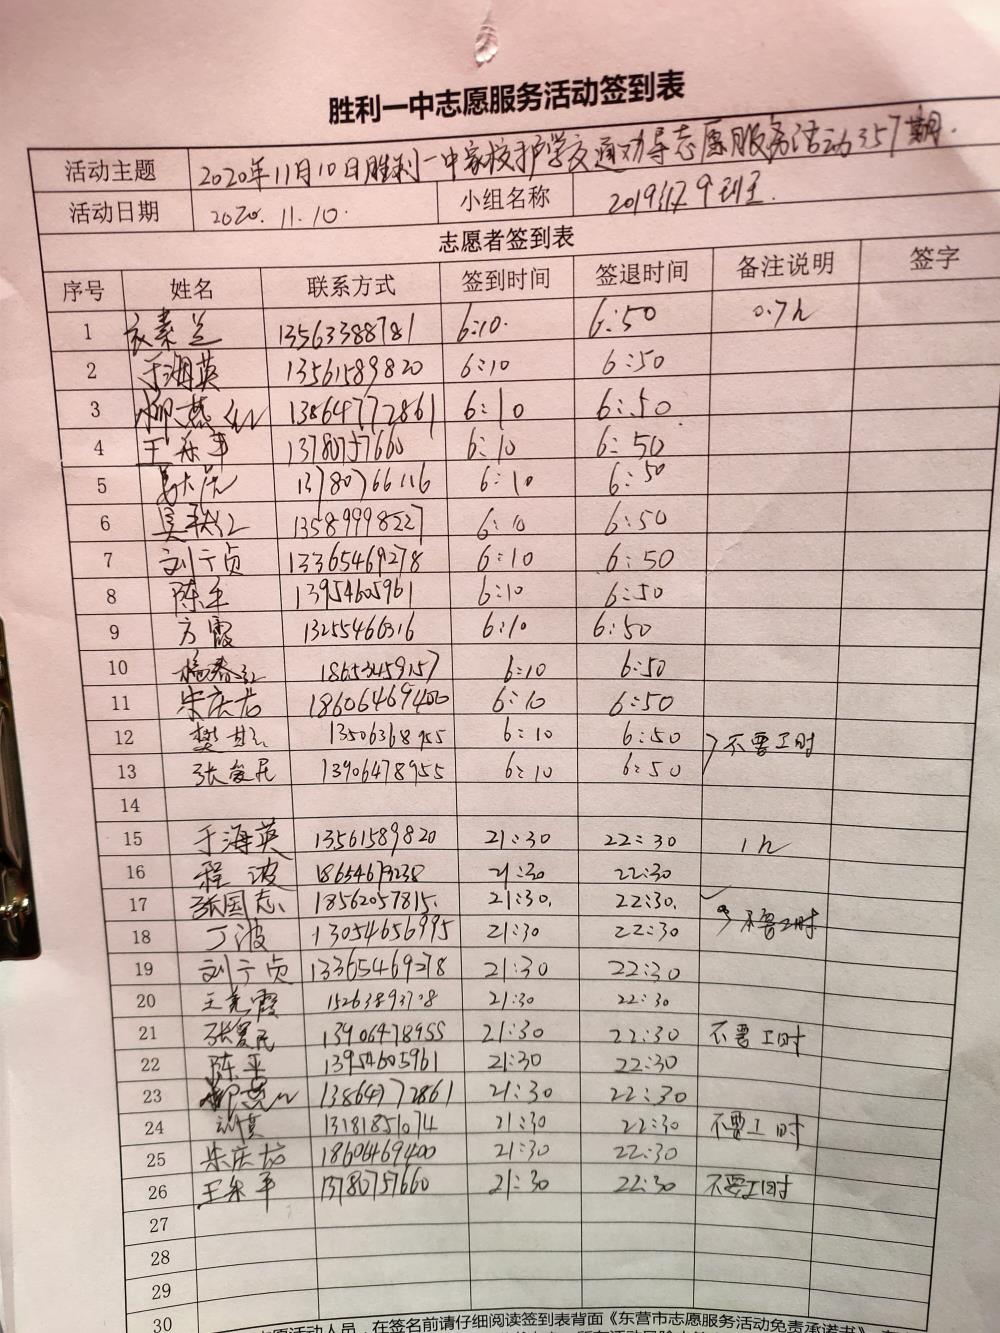 胜利一中志愿服务活动签到表
活动主题 2020年11月10日胜利一中家校护学交通劝导志愿服务活动357期.
活动日期 2020.11.10. 小组名称 2019级9班
志愿者签到表
序号 姓名 联系方式 签到时间 签退时间 备注说明 签字
1 衣素兰 13563388781 6:10. 6:50 0.7h
2 于海英 13561589820 6:10 6:50
3 柳燕 13864772861 6:10 6:50
4 王乐平 13780757660 6:10 6:50
5 13780766116 6:10 6:50
6 吴 13589998227 6:10 6:50
7 刘宁贞 13365469278 6:10 6:50
8 陈平 13954605961 6:10 6:50
9 方霞 13255466316 6:10 6:50
10 杨春红 6:10 6:50
11 宋庆芳 18606469400 6:10 6:50
12 樊 13506368955 6:10 6:50 不要工时
13 张爱民 13906478955 6:10 6:50
14
15 于海英 13561589820 21:30 22:30 1h
16 程波 18654679238 21:30 22:30
17 张国志 18562057815. 21:30. 22:30.
18 丁波 13054656995 21:30 22:30 不要工时
19 刘宁贞 13365469278 21:30 22:30
20 王光霞 15263893708 21:30 22:30
21 张爱民 13906478955 21:30 22:30 不要工时
22 陈平 13954605961 21:30 22:30
23 柳燕 13864772861 21:30 22:30
24 刘真 13181851074 21:30 22:30 不要工时
25 宋庆芳 18606469400 21:30 22:30
26 王乐平 13780757660 21:30 22:30 不要工时
27
28
29
30
志愿活动人员，在签名前请仔细阅读签到表背面《东营市志愿服务活动免责承诺书》